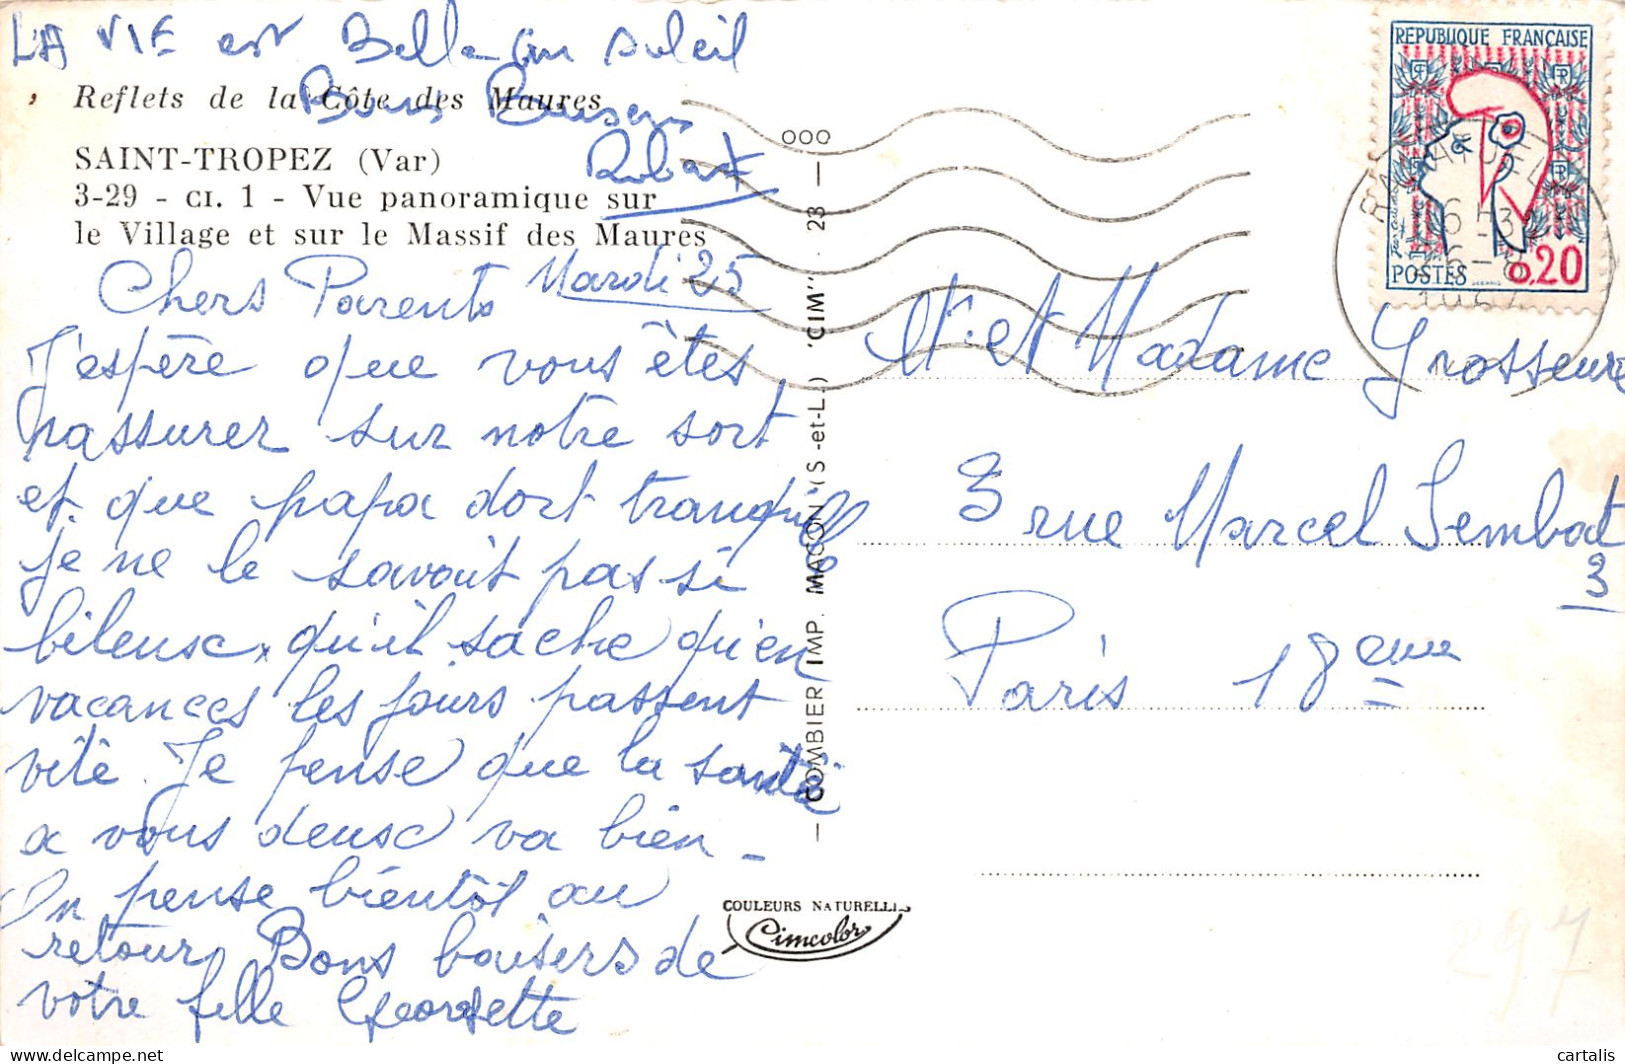 LA VIE est Belle au soleil
Bons Baisers
Robert
Reflets de la Côte des Maures
SAINT-TROPEZ (Var)
3-29 - CI. 1 - Vue panoramique sur
le Village et sur le Massif des Maures
Mardi 25
Chers Parents
J'espère que vous êtes
rassurer sur notre sort,
et que papa dort tranquille
je ne le savait pas si
bileux, qu'il sache qu'en
vacances les jours passent
vite. Je pense que la santé
a vous deux va bien -
On pense bientôt au
retour Bons baisers de
votre fille Georgette
000
— COMBIER IMP. MACON (S-et-L.) "CIM" . 23 —
COULEURS NATURELLES
Cimcolor
REPUBLIQUE FRANÇAISE
RF
RF
POSTES
0,20
RAMATUELLE
16 H 30
1964
Mr. et Madame Grosseure
3 rue Marcel Sembat
3
Paris 18 eme
297
cartalis
cartalis
delcampe.net